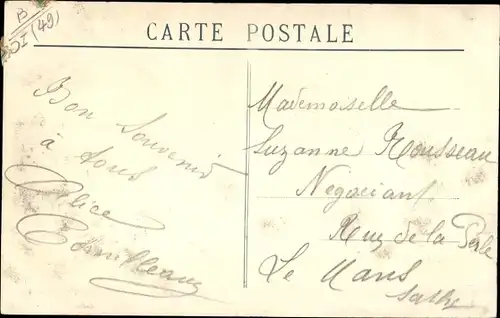 B
(49)
CARTE POSTALE
Bon souvenir
à tous
Alice
Mademoiselle
Suzanne Rousseau
Négociant
Rue de la Perle
Le Mans
Sarthe